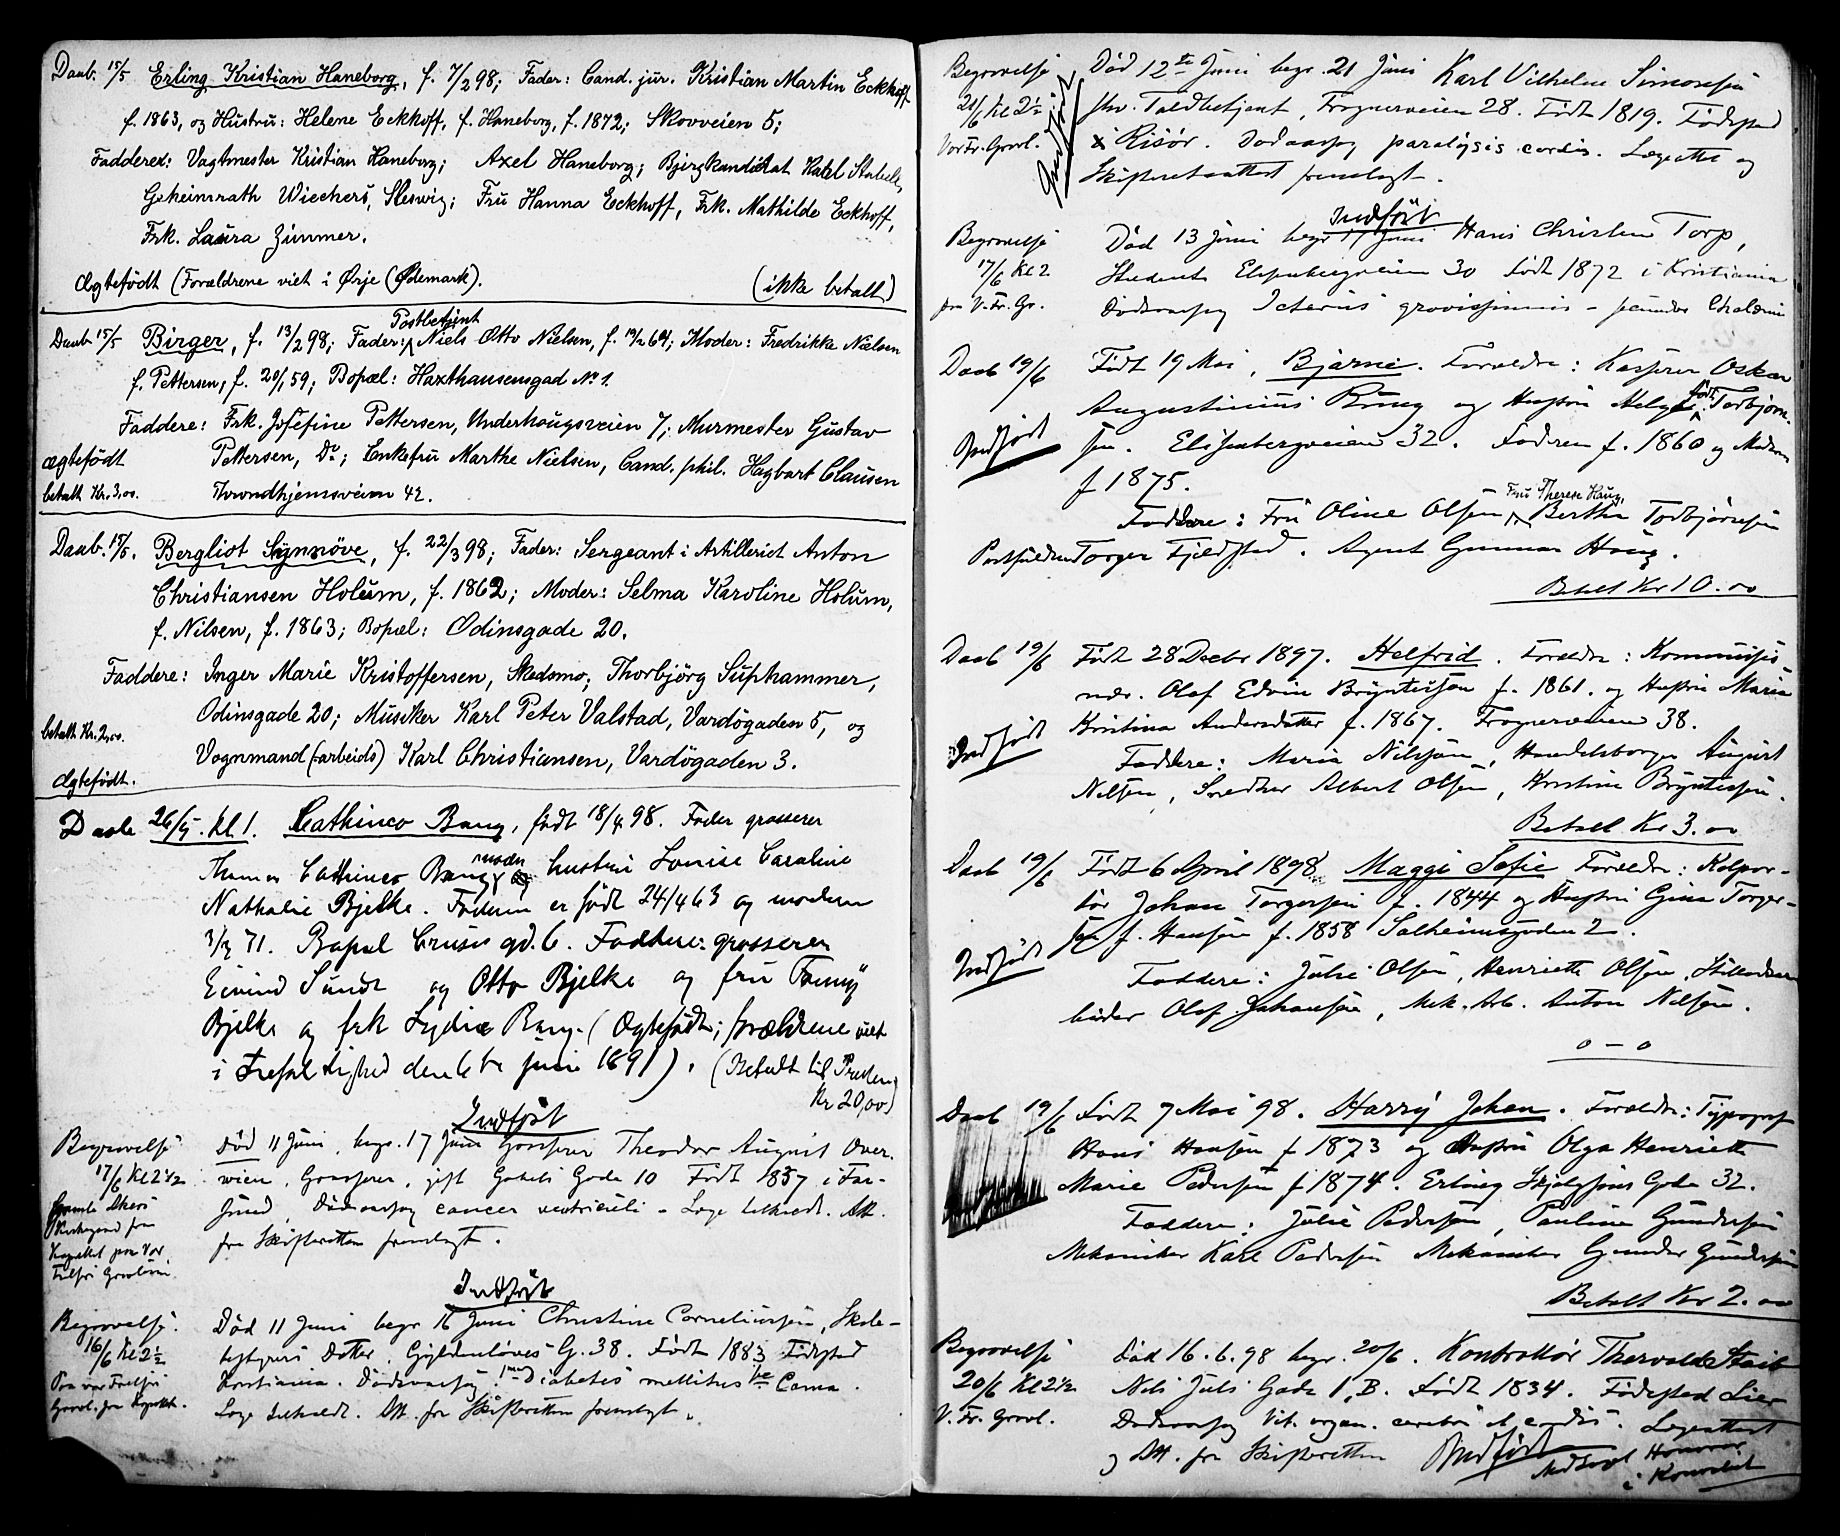 Daab. 15/5 Erling Kristian Haneborg, f. 7/2 98; Fader: Cand. jur. Kristian Martin Eckhoff
f. 1863, og Hustru: Helene Eckhoff, f. Haneborg, f. 1872; Skovveien 5;
Fadderer: Vagtmester Kristian Haneborg; Axel Haneborg; Bjergkandidat Karl
Geheimrath Wiechers, Slesvig; Fru Hanna Eckhoff, Frk. Mathilde Eckhoff,
Frk. Laura Zimmer.
Ægtefødt (Forældrene viet i Ørje (Ødemark). (ikke betalt)
Postbetjent
Daab 15/5 Birger, f. 13/2 98; Fader: Niels Otto Nielsen, f. 64; Moder: Fredrikke Nielsen
f. Pettersen, f. 20/1 59; Bopæl: Haxthausensgad No 1.
Faddere: Frk. Josefine Pettersen, Underhaugsveien 7; Murmester Gustav
ægtefødt Pettersen, Do; Enkefru Marthe Nielsen, Cand. phil. Hagbart Clausen
betalt Kr. 3,00. Throndhjemsveien 42.
Daab. 15/5. Bergliot Synnöve, f. 22/3 98; Fader: Sergeant i Artilleriet Anton
Christiansen Holum, f. 1862; Moder: Selma Karoline Holum,
f. Nilsen, f. 1863; Bopæl: Odinsgade 20.
Faddere: Inger Marie Kristoffersen, Skedsmo; Thorbjörg Suphammer,
Odinsgade 20; Musiker Karl Peter Valstad, Vardögaden 5, og
betalt Kr. 2,00.
Vognmand (arbeids) Karl Christiansen, Vardögaden 3.
Ægtefødt.
Daab 26/5. kl. 1. Cathinco Bang, født 18/4 98. Fader grosserer
Thomas Cathinco Bang moder hustru Louise Caroline
Nathalie Bjelke. Faderen er født 24/4 63 og moderen
71. Bopæl Cruses gd. 6. Faddere: grosserer
Eivind Sundt og Otto Bjelke og fru Fanny
Bjelke og frk Lydia Bang. (Ægtefødt; forældrene viet
i Trefoldighed den 6te juni 1891). (Betalt til Præsten
Kr 20,00)
Indført
Begravelse Død 11 Juni, begr. 17 Juni Grosserer Theodor August Over-
17/6 Kl 2 1/2 wien, Grosserer, gift Gabels Gade 10 Født 1837 i Far-
Gamle Akers sund, Dødsaarsag cancer ventriculi – Att.
Kirkegaard fra fra Skifteretten fremlagt.
Kapellet paa Vor
Frelsers Gravlund.
Indført
Begravelse. Død 11 Juni begr 16 Juni Christine Corneliussen, Skole-
16/6 Kl 2 1/2 bestyrers Datter. Gyldenløves G. 38. Født 1883 Fødested
Paa vor Frelsers Kristiania. Dødsaarsag Diabetes mellitus Coma.
Gravl. fra Kapellet. Att. fra Skifteretten fremlagt.
Begravelse Død 12te Juni begr. 21 Juni Karl Vilhelm Simonsen
21/6 Kl 2 1/2 Toldbetjent, Frognerveien 28. Født 1819. Fødested
Vor Fr. Gravl. Indført Risör. Dødsaarsag paralysis cordis. Lægeattest og
Skifteretsattest fremlagt.
Indført
Begravelse Død 13 Juni begr 17 Juni Hans Christen Torp,
17/6 Kl 2 Student Elisenbergveien 30 Født 1872 i Kristiania
paa V. Fr. Gr. Dødsaarsag Icterus gravissimus –
Daab 19/6 Født 19 Mai, Bjarne. Forældre: Kasserer Oskar
Augustinius Ring og Hustru Helga født Torbjørn-
Indført sen. Elisenbergveien 32. Faderen f. 1860 og Moderen
f 1875.
Fru Therese Haug,
Faddere: Fru Oline Olsen Bertha Torbjørnsen
Torger Fjeldstad. Agent Gunnar Haug.
Betalt Kr 10.00
Daab 19/6 Født 28 Decbr 1897. Helfrid. Forældre: Kommissio-
nær. Olaf Edvin Bryntesen f. 1861. og Hustru Maria
Kristina Andersdatter f. 1867. Frognerveien 38.
Indført Faddere: Maria Nilsen, Handelsborger August
Nilsen, Snedker Albert Olsen, Kristine Bryntesen.
Betalt Kr 3.00
Daab 19/6 Født 6 April 1898. Maggi Sofie Forældre: Kolpor-
tör Johan Torgersen f. 1844 og Hustru Gina Torger-
sen f. Hansen f. 1858 Solheimsgaden 2.
Indført Faddere: Julie Olsen, Henriette Olsen,
Olaf Johansen, Mek. Arb. Anton Nilsen.
o – o
Daab 19/6 Født 7 Mai 98. Harry Johan. Forældre: Typograf
Hans Hansen f 1873 og Hustru Olga Henriette
Marie Pedersen f 1874. Erling Skjalgsøns Gade 32.
Faddere: Julie Pedersen, Pauline Gundersen
Mekaniker Karl Pedersen Mekaniker Gunder Gundersen
Betalt Kr 2.00
Begravelse Død 16.6.98 begr. 20/6. Kontrollör Thorvald
20/6 Kl 2 1/2 Nils Juls Gade 1 B. Født 1834. Fødested Lier
V. Fr. Gravl. Dødsaarsag Vit. organ. cerebri et cordis. Lægeattest
og Att. fra Skifteretten Indført